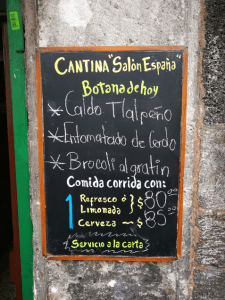 CANTINA "Salón España"
Botana de hoy
Caldo Tlalpeño
Entomatado de Cerdo
Brocoli al gratin
Comida corrida con:
1 Refresco ó } $ 80.00
Limonada
Cerveza ~ $ 85.00
Servicio a la carta